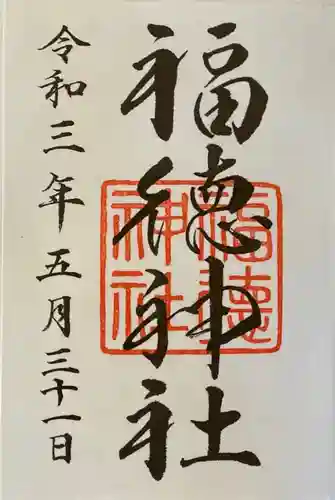 福徳神社
令和三年五月三十一日
福徳
神社